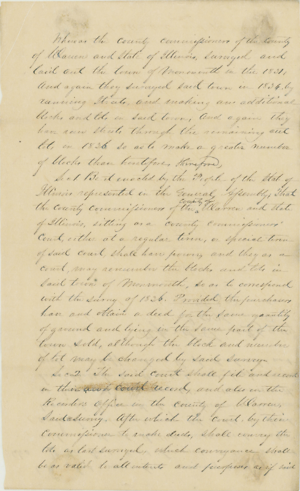 Whereas the county commissioners of the county
of Warren and State of Illinois surveyed and
laid out the town of Monmouth in the 1831.
And again they surveyed said town in 1836 by
running Streets, and making an additional
blocks and lots in said town, And again they
has new Streets through the remaining out
lots in 1836 so as to make a greater number
of blocks than heretofore
Sec 1 Be it enacted by the People of the State of
Illinois represented in the General Assembly, That
the County commissioners of the county of Warren and State
of Illinois, sitting as a county commissioners
Court either at a regular term, or special term
of said court shall have power, and they as a
court, may renumber the blocks and lots in
said town of Monmouth, so as to correspond
with the survey of 1836. Provided the purchasers
has and obtain a deed for the same quantity
of ground and lying in the same part of the
town sold, although the block and number
of lot may be changed by said survey
Sec 2 The said court shall file and record
in their court record, and also in the
Recorders office in the county of Warren
said survey. After which the court by their
commissioner to make deeds, shall convey the
lots as last surveyed, which conveyance shall
be as valid to all intents and purposes as if said